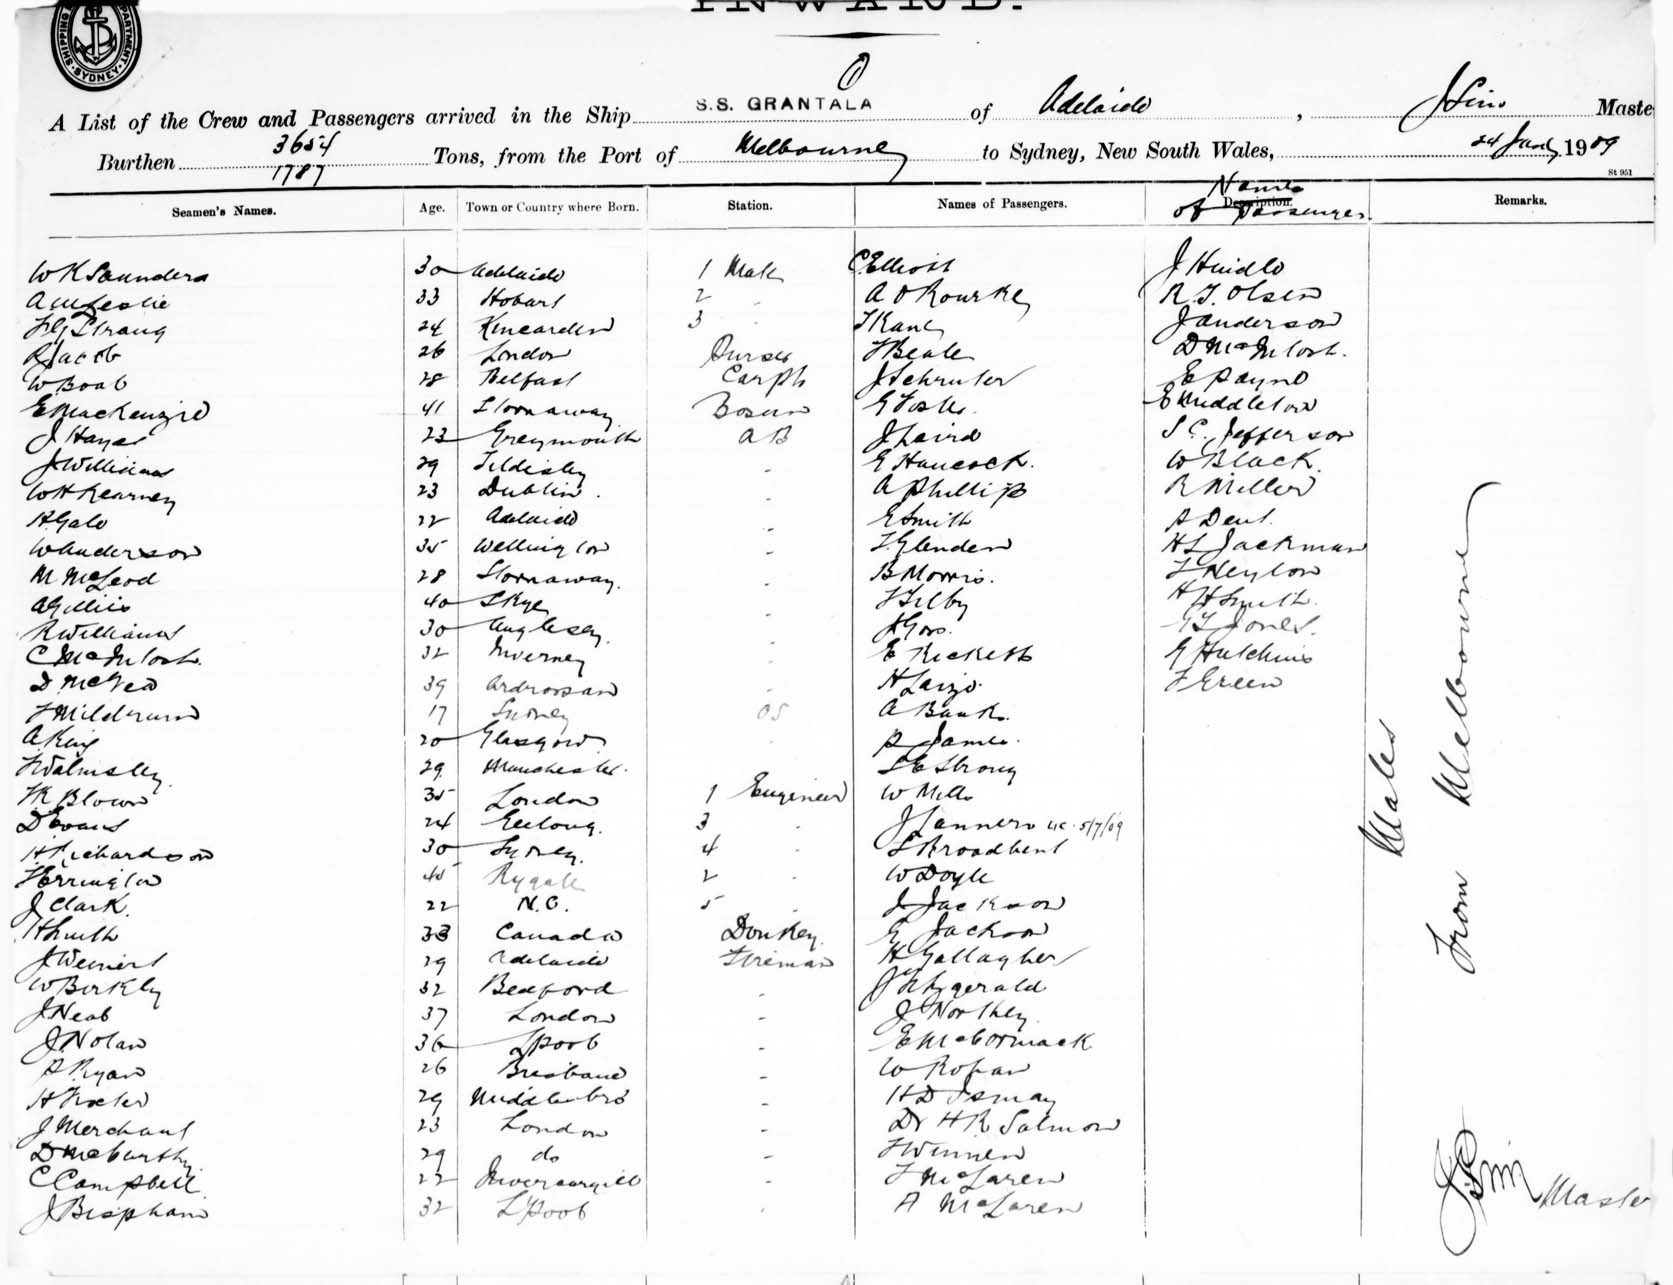 INWARD.
SHIPPING DEPARTMENT · SYDNEY ·
A List of the Crew and Passengers arrived in the Ship S.S. GRANTALA of Adelaide, J Sim Maste
Burthen 3654 1787 Tons, from the Port of Melbourne to Sydney, New South Wales, 24 Jany 1909
St 951
Seamen's Names. Age. Town or Country where Born. Station. Names of Passengers. Description. Names of Passenger. Remarks.
W K Saunders 30 Adelaide 1 Mate C Elliott J Hindle
A W Leslie 33 Hobart 2 - A O Rourke R J. Olsen
F G Strang 24 Kincarden 3 - J Kane J Anderson
R Jacob 26 London Purser F Beale D McIntosh.
W Boab 28 Belfast Carptr J Schruter E Payne
E MacKenzie 41 Stornaway Bosun G Foster E Middleton
J Hayes 23 Greymouth A B J Laird S C. Jefferson
J Williams 29 Tildisley - E Hancock. W Black.
W H Kearney 23 Dublin. - A Phillips R Miller
H Gale 22 Adelaide - E Smith A Dent.
W Anderson 35 Wellington - J. Glenden H L Jackman
M McLeod 28 Stornaway. - B Morris. F Neylon
A Gillies 40 Skye - F Silby H H Smith.
R Williams 30 Anglesey. - J Goss. G L Jones.
C McIntosh. 32 Inverney - E Ricketts G Hutchins
D McVea 39 Ardrossan - H F Green
F Milderum 17 Sydney O S A Banks.
A King 20 Glasgow - P James.
F Walmsley 29 Manchester. L E Strong
F R Blown 35 London 1 Engineer W Mills
D Evans 24 Geelong. 3 - J Lannero 5/7/09
H Richardson 30 Sydney. 4 - S Broadbent
F Errington 45 Rygate 2 - W Doyle
J Clark. 22 N.C. 5 - J Jackson
H Smith 33 Canada Donkey. G Jackson
J Weinert 29 Adelaide Fireman H Gallagher
W Birkly 32 Bedford - J Fitzgerald
J Neab 37 London - J Northey
J Nolan 36 L'pool - E McCormack
P Ryan 26 Brisbane - W Rohan
H Foster 29 Middlesbro - H D Ismay
J Merchant 23 London - Dr H R Salmon
D McCarthy 29 do - F Winnen
C Campbell 22 Invercargill - F McLaren
J Bispham 32 L'pool - A McLaren
Males
From Melbourne
J Sim Master